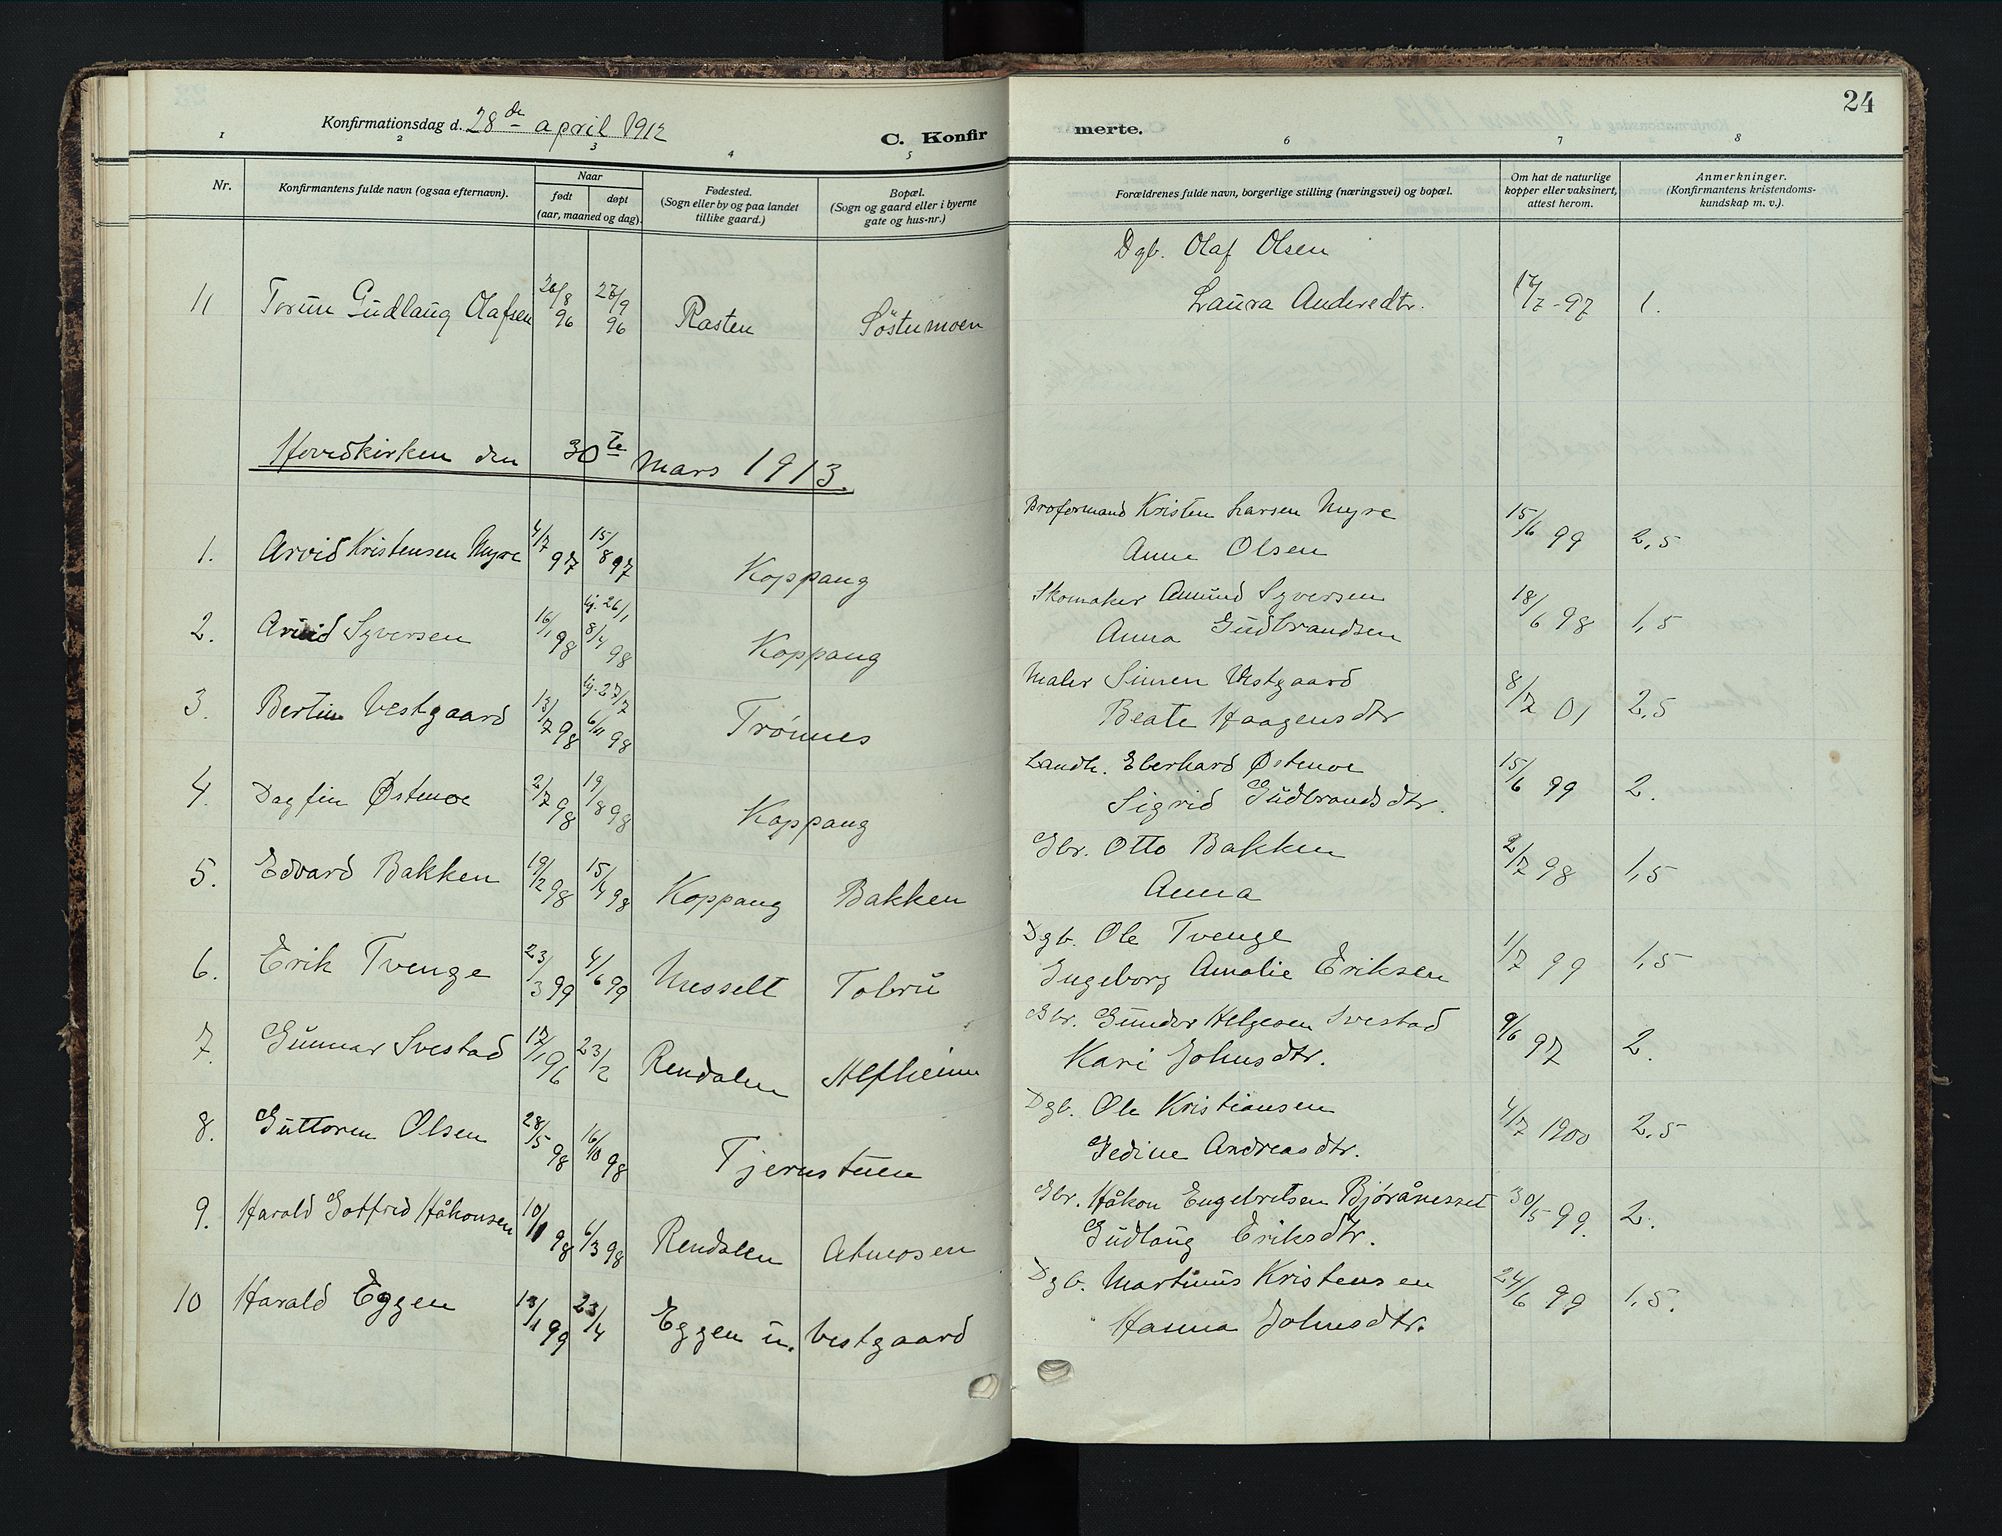 24
Konfirmationsdag d. 28de april 1912
C. Konfirmerte.
1 2 3 4 5 6 7 8
Nr. Konfirmantens fulde navn (ogsaa efternavn). Naar født døpt (aar, maaned og dag). Fødested. (Sogn eller by og paa landet tillike gaard.) Bopæl. (Sogn og gaard eller i byerne gate og hus-nr.) Forældrenes fulde navn, borgerlige stilling (næringsvei) og bopæl. Om hat de naturlige kopper eller vaksinert, attest herom. Anmerkninger. (Konfirmantens kristendomskundskap m. v.)
Dgb. Olaf Olsen
11 Torun Gudlaug Olafsen 26/8 96 27/9 96 Rasten Söstumoen Laura Andersdtr. 17/7-97 1.
Hovedkirken den 30te Mars 1913.
Broformand Kristen Larsen Myre
1. Arvid Kristensen Myre 4/7 97 15/8 97 Koppang Anne Olsen 15/6 99 2,5
Skomaker Amund Syversen
2. Arvid Syversen 16/1 98 hj. 26/1 8/4 98 Koppang Anna Gudbrandsen 18/6 98 1,5
Maler Simen Vestgaard
3. Bertin Vestgaard 13/7 98 hj. 27/7 6/11 98 Trønnes Beate Haagensdtr 8/7 01 2,5
Landh. Eberhard Østenoe
4. Dagfin Østenoe 2/7 98 19/8 98 Koppang Sigrid Gudbrandsdtr. 15/6 99 2.
Gbr. Otto Bakken
5. Edvard Bakken 19/2 98 15/4 98 Koppang Bakken Anna 2/7 98 1,5
Dgb. Ole Tvenge
6. Erik Tvenge 23/3 99 4/6 99 Messelt Tobru Ingeborg Amalie Eriksen 1/7 99 1,5
Gbr. Gunder Helgesen Svestad
7. Gunnar Svestad 17/1 96 23/2 Rendalen Alfheim Kari Johnsdtr. 9/6 97 2.
Dgb. Ole Kristiansen
8. Guttorm Olsen 28/5 98 16/10 98 Tjernstuen Gedine Andreasdtr. 4/7 1900 2,5
Gbr. Håkon Engebretsen Bjøråneset
9. Harald Gotfrid Håkonsen 10/1 98 6/3 98 Rendalen Atmosen Gudlaug Eriksdtr. 30/5 99. 2.
Dgb. Martinus Kristensen
10 Harald Eggen 13/1 99 23/4 Eggen u. Vestgaard Hanna Johnsdtr. 24/6 99 1,5.